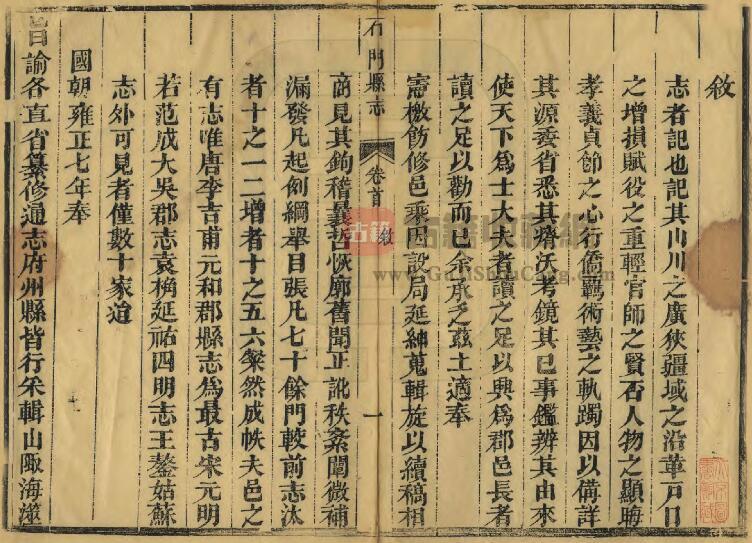 敘
志者記也記其山川之廣狹疆域之沿革戸口
之增損賦役之重輕官師之賢否人物之顯晦
孝義貞節之心行僑羈術藝之軌躅因以備詳
其源委省悉其瘠沃考鏡其已事鑑辨其由來
使天下爲士大夫者讀之足以興爲郡邑長者
讀之足以勸而已余承乏茲土適奉
憲檄飭修邑乘因設局延紳蒐輯旋以續稿相
石門縣志
卷首
敘
一
商見其鉤稽曩哲恢廓舊聞正訛秩紊闡微補
漏發凡起例綱舉目張凡七十餘門較前志汰
者十之一二增者十之五六粲然成帙夫邑之
有志唯唐李吉甫元和郡縣志爲最古宋元明
若范成大吳郡志袁桷延祐四明志王鏊姑蘇
志外可見者僅數十家迨
國朝雍正七年奉
旨諭各直省纂修通志府州縣皆行采輯山陬海澨
古籍
www.GuJiShuCang.com